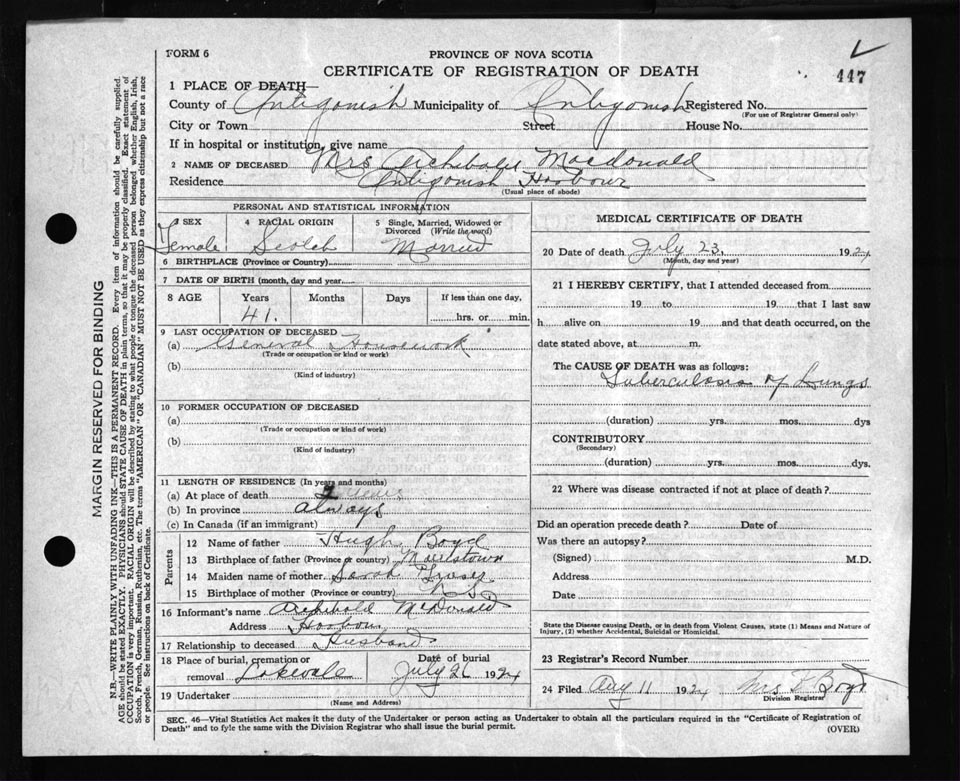 FORM 6
PROVINCE OF NOVA SCOTIA
CERTIFICATE OF REGISTRATION OF DEATH
447
1 PLACE OF DEATH—
County of Antigonish Municipality of Antigonish Registered No.
(For use of Registrar General only)
City or Town Street House No.
If in hospital or institution, give name
2 NAME OF DECEASED Mrs Archibald Macdonald
Residence Antigonish Harbour
(Usual place of abode)
PERSONAL AND STATISTICAL INFORMATION
3 SEX 4 RACIAL ORIGIN 5 Single, Married, Widowed or Divorced (Write the word)
Female Scotch Married
6 BIRTHPLACE (Province or Country)
7 DATE OF BIRTH (month, day and year
8 AGE Years Months Days If less than one day,
41. hrs. or min.
9 LAST OCCUPATION OF DECEASED
(a) General Housework
(Trade or occupation or kind or work)
(b)
(Kind of industry)
10 FORMER OCCUPATION OF DECEASED
(a)
(Trade or occupation or kind of work)
(b)
(Kind of industry)
11 LENGTH OF RESIDENCE (In years and months)
(a) At place of death years
(b) In province always
(c) In Canada (if an immigrant)
Parents
12 Name of father Hugh Boyd
13 Birthplace of father (Province or country)
14 Maiden name of mother Sarah
15 Birthplace of mother (Province or country)
16 Informant's name Archibald McDonald
Address Harbour
17 Relationship to deceased Husband
18 Place of burial, cremation or removal Lakevale
Date of burial July 26 1924
19 Undertaker
(Name and Address)
MEDICAL CERTIFICATE OF DEATH
20 Date of death July 23, 1924
(Month, day and year)
21 I HEREBY CERTIFY, that I attended deceased from
19 to 19 that I last saw
h alive on 19 and that death occurred, on the
date stated above, at m.
The CAUSE OF DEATH was as follows:
Tuberculosis of Lungs
(duration) yrs. mos. dys
CONTRIBUTORY
(Secondary)
(duration) yrs. mos. dys.
22 Where was disease contracted if not at place of death?
Did an operation precede death? Date of
Was there an autopsy?
(Signed) M.D.
Address
Date
State the Disease causing Death, or in death from Violent Causes, state (1) Means and Nature of
Injury, (2) whether Accidental, Suicidal or Homicidal.
23 Registrar's Record Number
24 Filed Aug 11 1924 Mrs F Boyd
Division Registrar
SEC. 46—Vital Statistics Act makes it the duty of the Undertaker or person acting as Undertaker to obtain all the particulars required in the "Certificate of Registration of
Death" and to fyle the same with the Division Registrar who shall issue the burial permit.
(OVER)
MARGIN RESERVED FOR BINDING
N.B.—WRITE PLAINLY WITH UNFADING INK—THIS IS A PERMANENT RECORD. Every item of information should be carefully supplied.
AGE should be stated EXACTLY. PHYSICIANS should STATE CAUSE OF DEATH in plain terms, so that it may be properly classified. Exact statement of
OCCUPATION is very important. RACIAL ORIGIN will be described by stating to what people or tongue the deceased person belonged whether English, Irish,
Scotch, French, German, Russian, Ruthenian, etc. The terms "AMERICAN" OR "CANADIAN" MUST NOT BE USED as they express citizenship but not a race
or people. See instructions on back of Certificate.